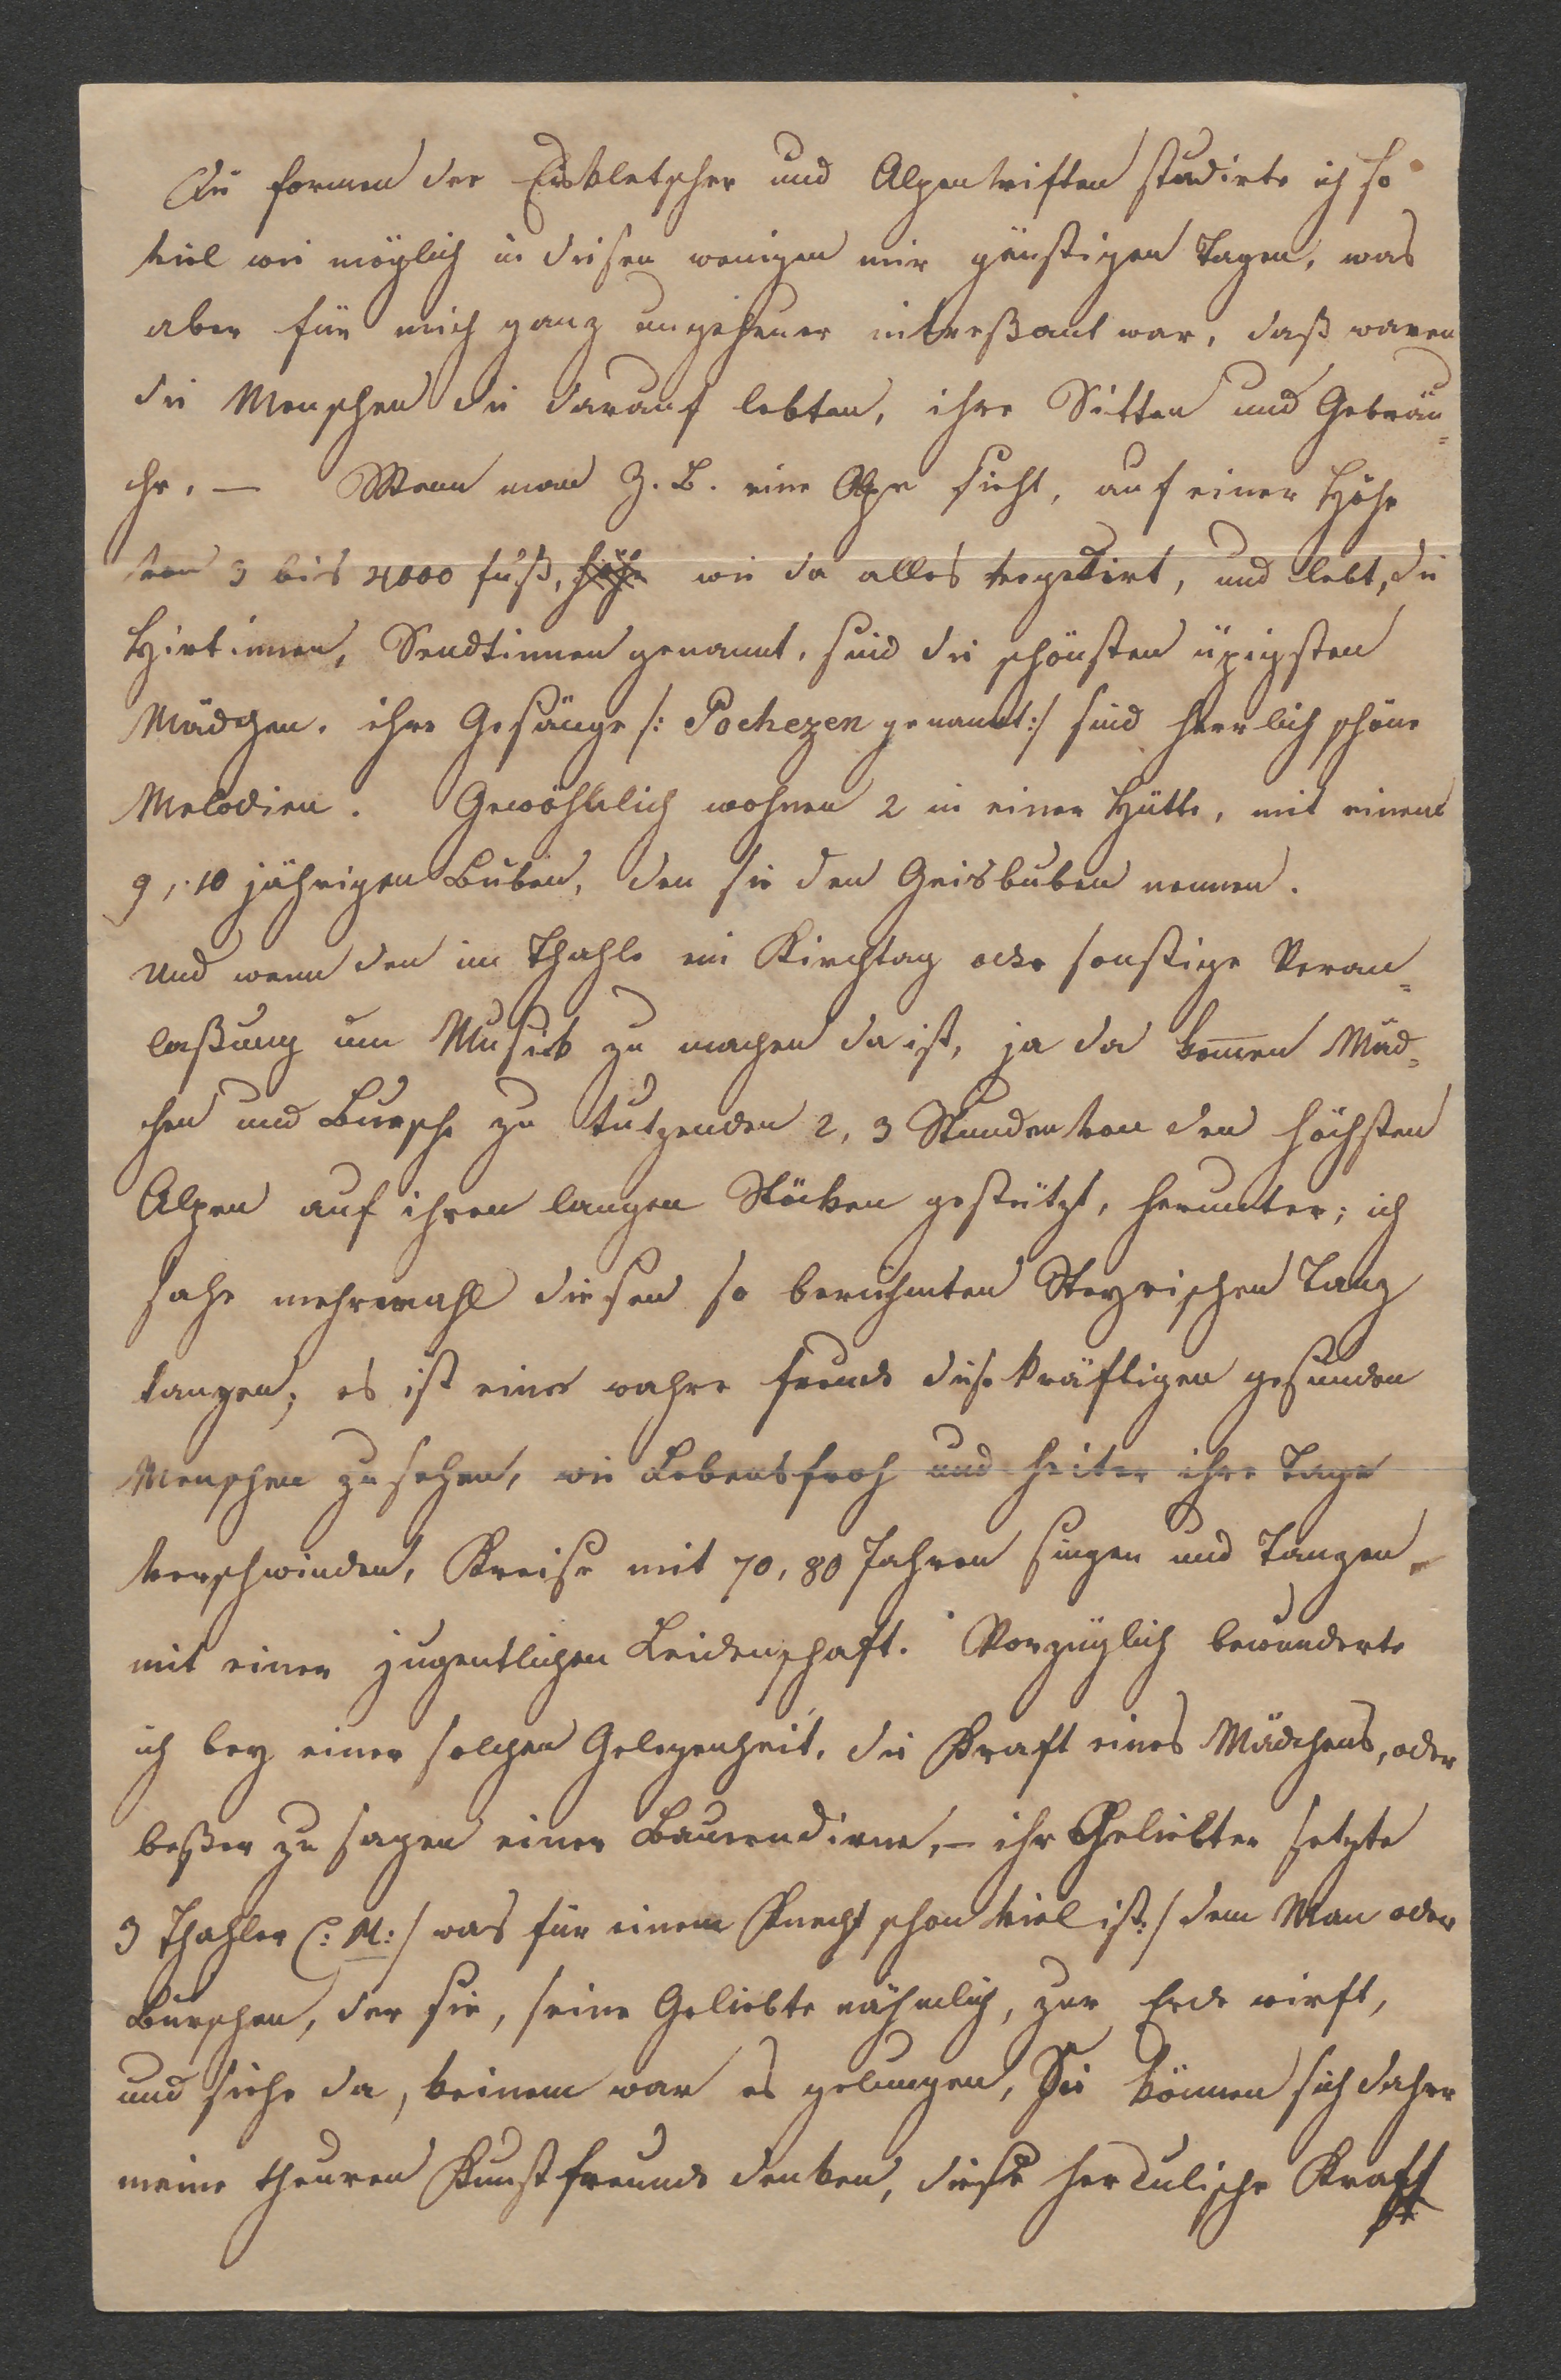 Die Formen der Eiskletscher und Alpentriften studirte ich so
viel wie möglich in diesen wenigen mir günstigen Tagen, was
aber für mich ganz ungeheuer intreßant war, daß waren
die Menschen die darauf lebten, ihre Sitten und Gebräu=
che. — Wenn man z. B. eine Alpe sieht, auf einer Höhe
von 3 bis 4000 fuß, Höhe wie da alles vegetirt, und lebt, die
Hirtinnen, Sendtinnen genannt, sind die schönsten üpigsten
Mädchen. ihre Gesänge /: Pochezen genannt :/ sind herrlich schöne
Melodien. Gewöhhlich wohnen 2 in einer Hütte, mit einem
9, 10 jährigen Buben, den sie den Geisbuben nennen.
Und wenn den im Thahle ein Kirchtag oder sonstige Veran=
laßung um Musick zu machen da ist, ja da kommen Mäd=
chen und Bursche zu tutzenden 2, 3 Stunden von den höchsten
Alpen auf ihren langen Stöcken gestützt, herunter; ich
sahe mehrmahl diesen so berühmten Steyrischen Tanz
tanzen; es ist eine wahre freude diese kräftigen gesunden
Menschen zu sehen, wie Lebensfroh und heiter ihre Tage
verschwinden, Kreise mit 70, 80 Jahren singen und Tanzen
mit einer jugentlichen Leidenschaft. Vorzüglich bewunderte
ich bey einer solchen Gelegenheit, die Kraft eines Mädchens, oder
beßer zu sagen einer Bauerndirne, — ihr Geliebter setzte
3 Thahler C: M: / was für einem Knecht schon viel ist :/ dem Man oder
Burschen, der sie, seine Geliebte nähmlich, zur Erde wirft,
und siehe da, keinem war es gelungen, Sie können sich daher
meine theuren Kunstfreunde denken, diese herculische Kraft